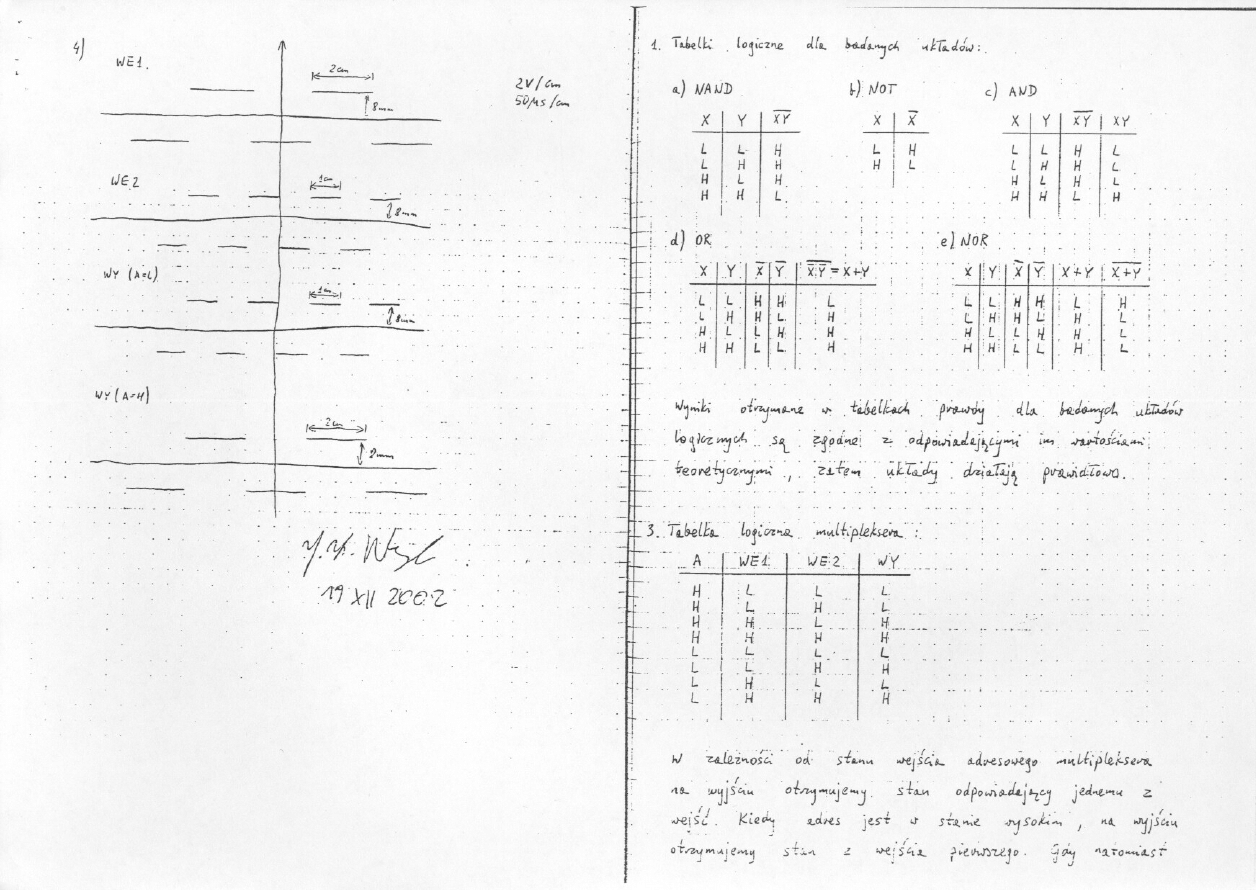 4)
WE1.
2cm
8mm
2V/cm
50μs/cm
WE2
1cm
8mm
WY (A=L)
1cm
8mm
WY (A=H)
2cm
9mm
19 XII 2002
1. Tabelki logiczne dla badanych układów:
a) NAND b) NOT c) AND
X Y X̅Y̅ X X̅ X Y X̅Y̅ XY
L L H L H L L H L
L H H H L L H H L
H L H H L H L
H H L H H L H
d) OR e) NOR
X Y X̅ Y̅ X̅ Y̅ = X+Y X Y X̅ Y̅ X+Y X̅+̅Y̅
L L H H L L L H H L H
L H H L H L H H L H L
H L L H H H L L H H L
H H L L H H H L L H L
Wyniki otrzymane w tabelkach prawdy dla badanych układów
logicznych są zgodne z odpowiadającymi im wartościami
teoretycznymi, zatem układy działają prawidłowo.
3. Tabelka logiczna multipleksera:
A WE1 WE2 WY
H L L L
H L H L
H H L H
H H H H
L L L L
L L H H
L H L L
L H H H
W zależności od stanu wejścia adresowego multipleksera
na wyjściu otrzymujemy stan odpowiadający jednemu z
wejść. Kiedy adres jest w stanie wysokim, na wyjściu
otrzymujemy stan z wejścia pierwszego. Gdy natomiast